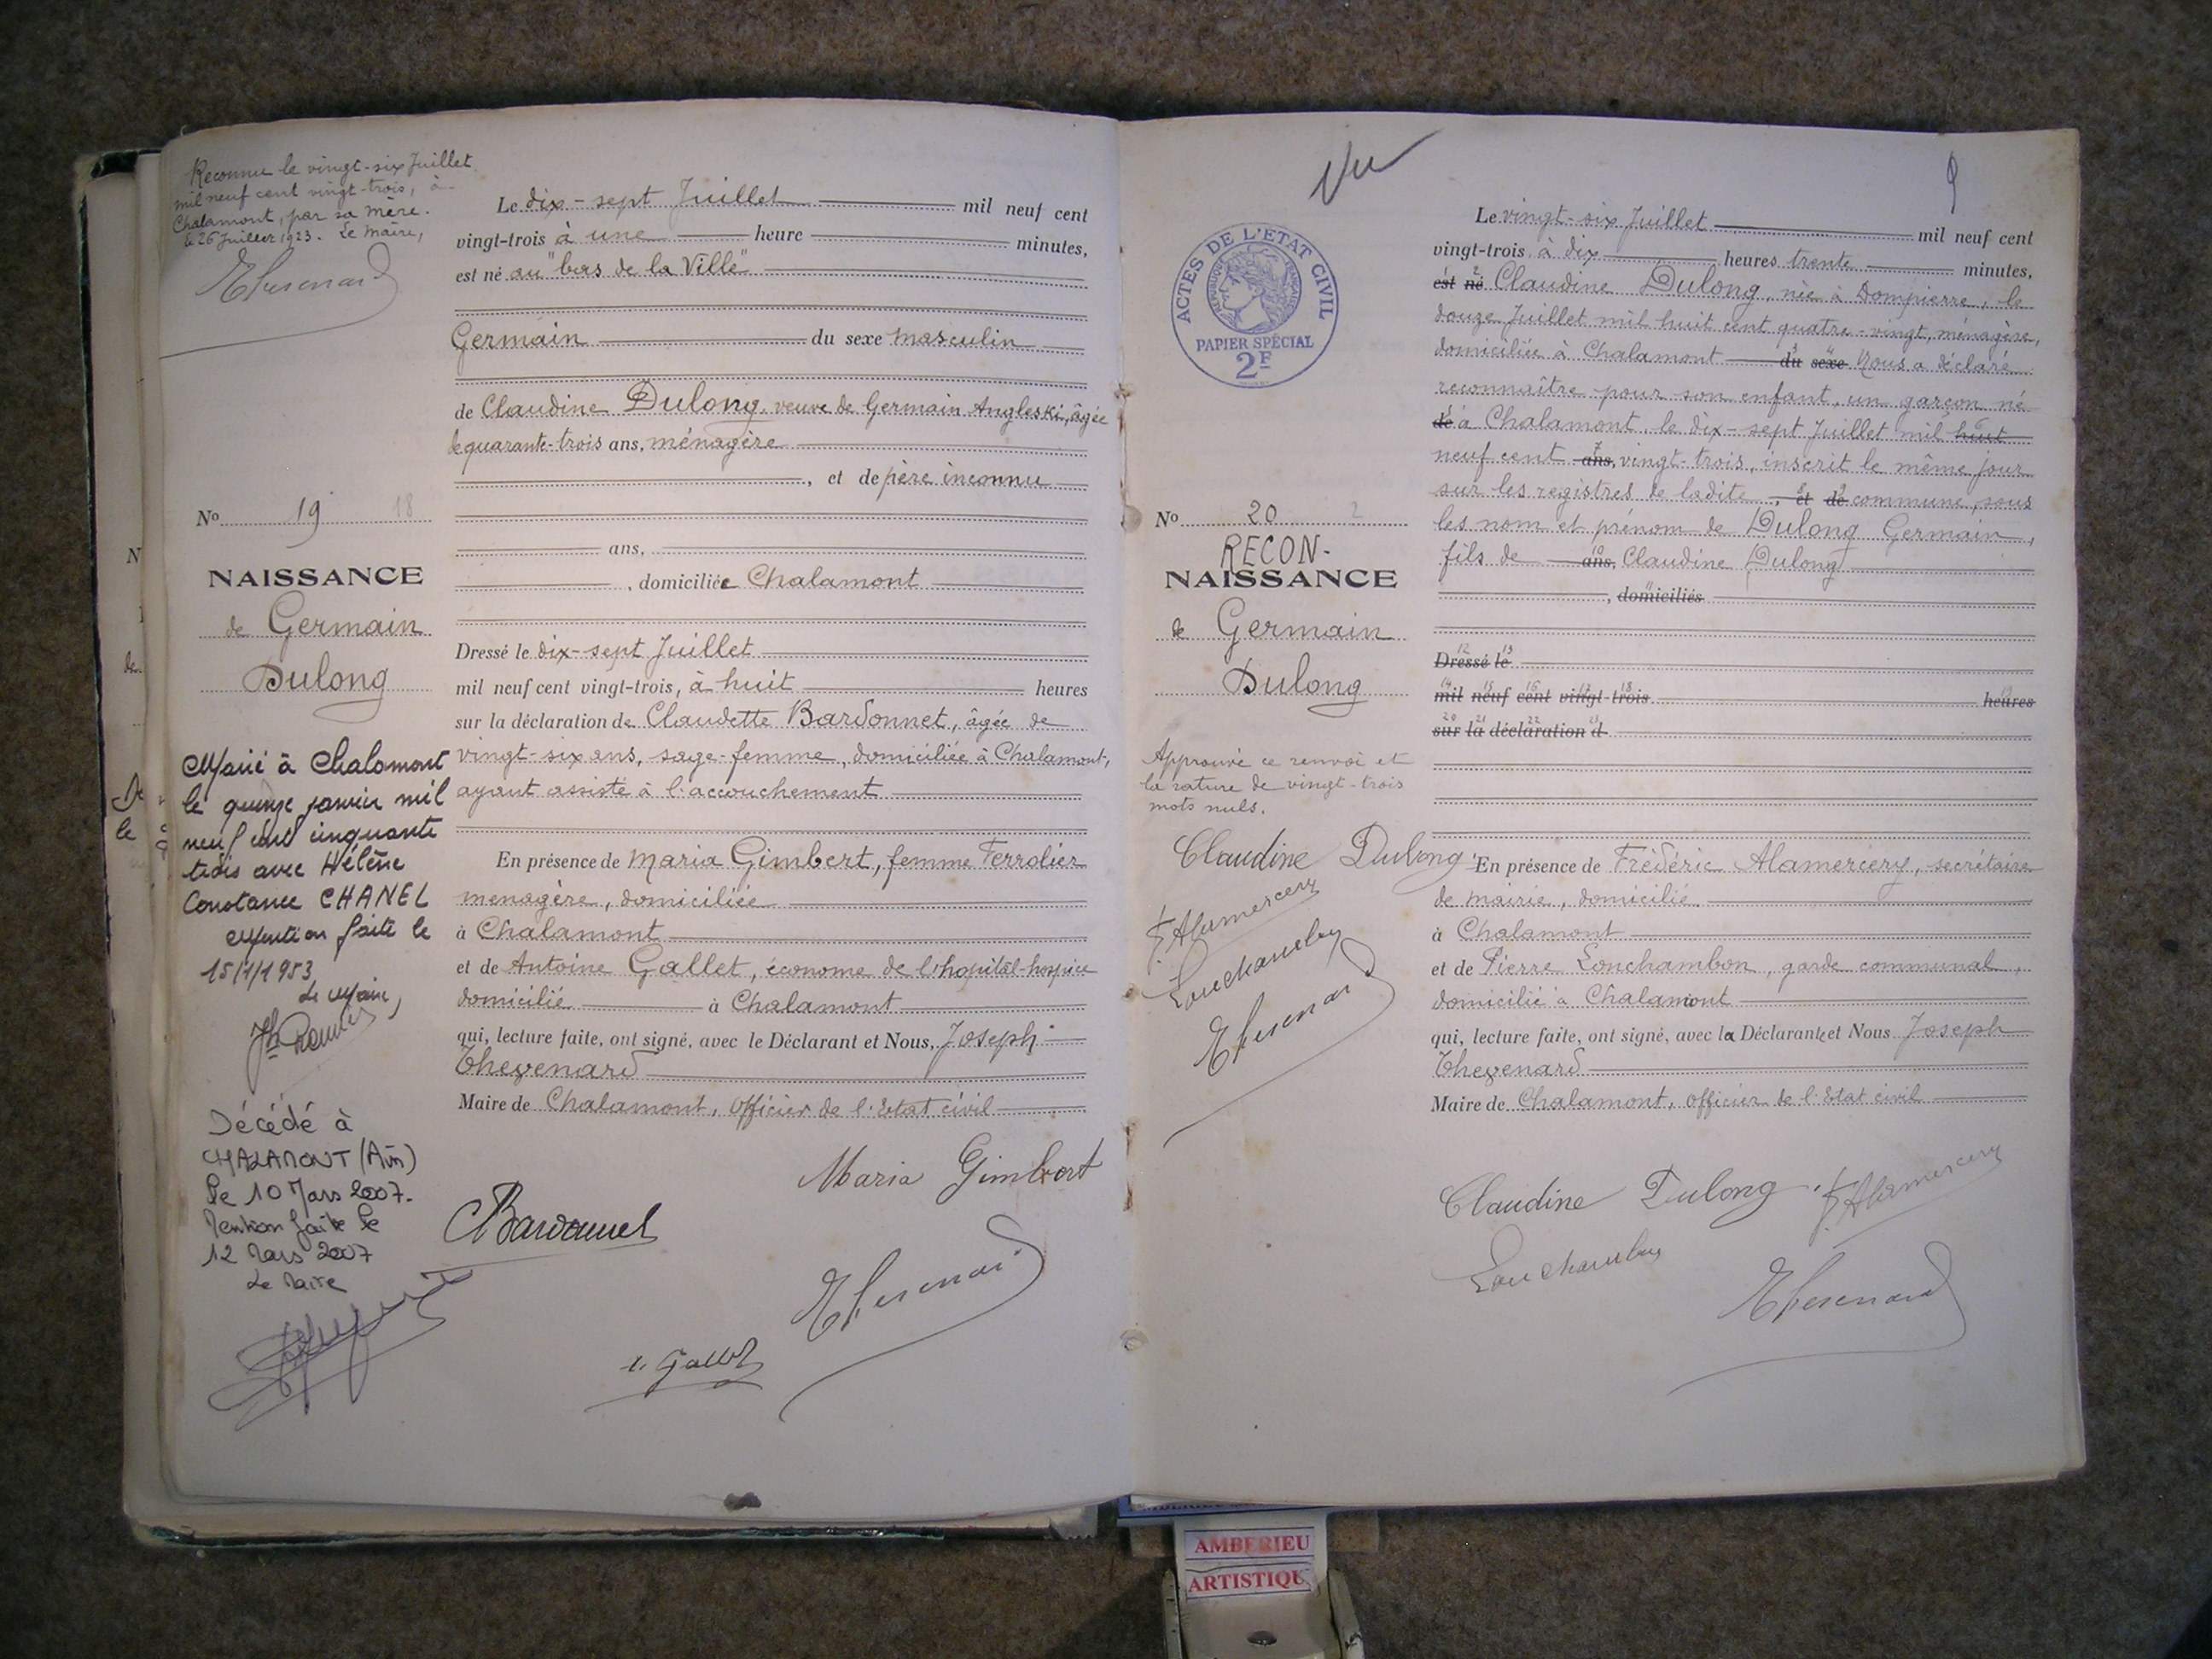 Reconnu le vingt-six Juillet
mil neuf cent vingt-trois, à
Chalamont, par sa mère.
le 26 Juillet 1923. Le Maire,
Thevenard
Le dix-sept Juillet mil neuf cent
vingt-trois à une heure minutes,
est né au "bas de la Ville"
Germain du sexe masculin
de Claudine Dulong, veuve de Germain Angleski, âgée
de quarante-trois ans, ménagère
, et de père inconnu
ans,
, domiciliée Chalamont
No 19 18
NAISSANCE
de Germain
Dulong
Dressé le dix-sept Juillet
mil neuf cent vingt-trois, à huit heures
sur la déclaration de Claudette Bardonnet, âgée de
vingt-six ans, sage-femme, domiciliée à Chalamont,
ayant assisté à l'accouchement
En présence de Maria Gimbert, femme Ferrolier
menagère, domiciliée
à Chalamont
et de Antoine Gallet, économe de l'hopital-hospice
domicilié à Chalamont
qui, lecture faite, ont signé, avec le Déclarant et Nous, Joseph
Thevenard
Maire de Chalamont, officier de l'Etat civil
Marié à Chalamont
le quinze janvier mil
neuf cent cinquante
trois avec Hélène
Constance CHANEL
Mention faite le
15/1/1953
Le Maire,
Décédé à
CHALAMONT (Ain)
le 10 Mars 2007.
Mention faite le
12 Mars 2007
Le Maire
Maria Gimbert
CBardonnet
Thevenard
A. Gallet
Vu
9
ACTES DE L'ETAT CIVIL
REPUBLIQUE FRANÇAISE
PAPIER SPÉCIAL
2F
Le vingt-six Juillet mil neuf cent
vingt-trois à dix heures trente minutes,
est né Claudine Dulong, née à Dompierre, le
douze Juillet mil huit cent quatre-vingt, ménagère,
domiciliée à Chalamont du sexe Nous a déclaré
reconnaître pour son enfant, un garçon né
de à Chalamont, le dix-sept Juillet mil huit
neuf cent ans, vingt-trois, inscrit le même jour
sur les registres de ladite , et de commune, sous
les nom et prénom de Dulong Germain,
fils de ans, Claudine Dulong
, domiciliés
No 20 2
RECON-
NAISSANCE
de Germain
Dulong
Dressé le
mil neuf cent vingt-trois heures
sur la déclaration d
Approuvé ce renvoi et
la rature de vingt-trois
mots nuls.
Claudine Dulong
F. Alamercery
Lonchambon
Thevenard
En présence de Frédéric Alamercery, secrétaire
de mairie, domicilié
à Chalamont
et de Pierre Lonchambon, garde communal,
domicilié à Chalamont
qui, lecture faite, ont signé, avec la Déclarante et Nous Joseph
Thevenard
Maire de Chalamont, officier de l'Etat civil
Claudine Dulong F. Alamercery
Lonchambon
Thevenard
AMBERIEU
ARTISTIQU